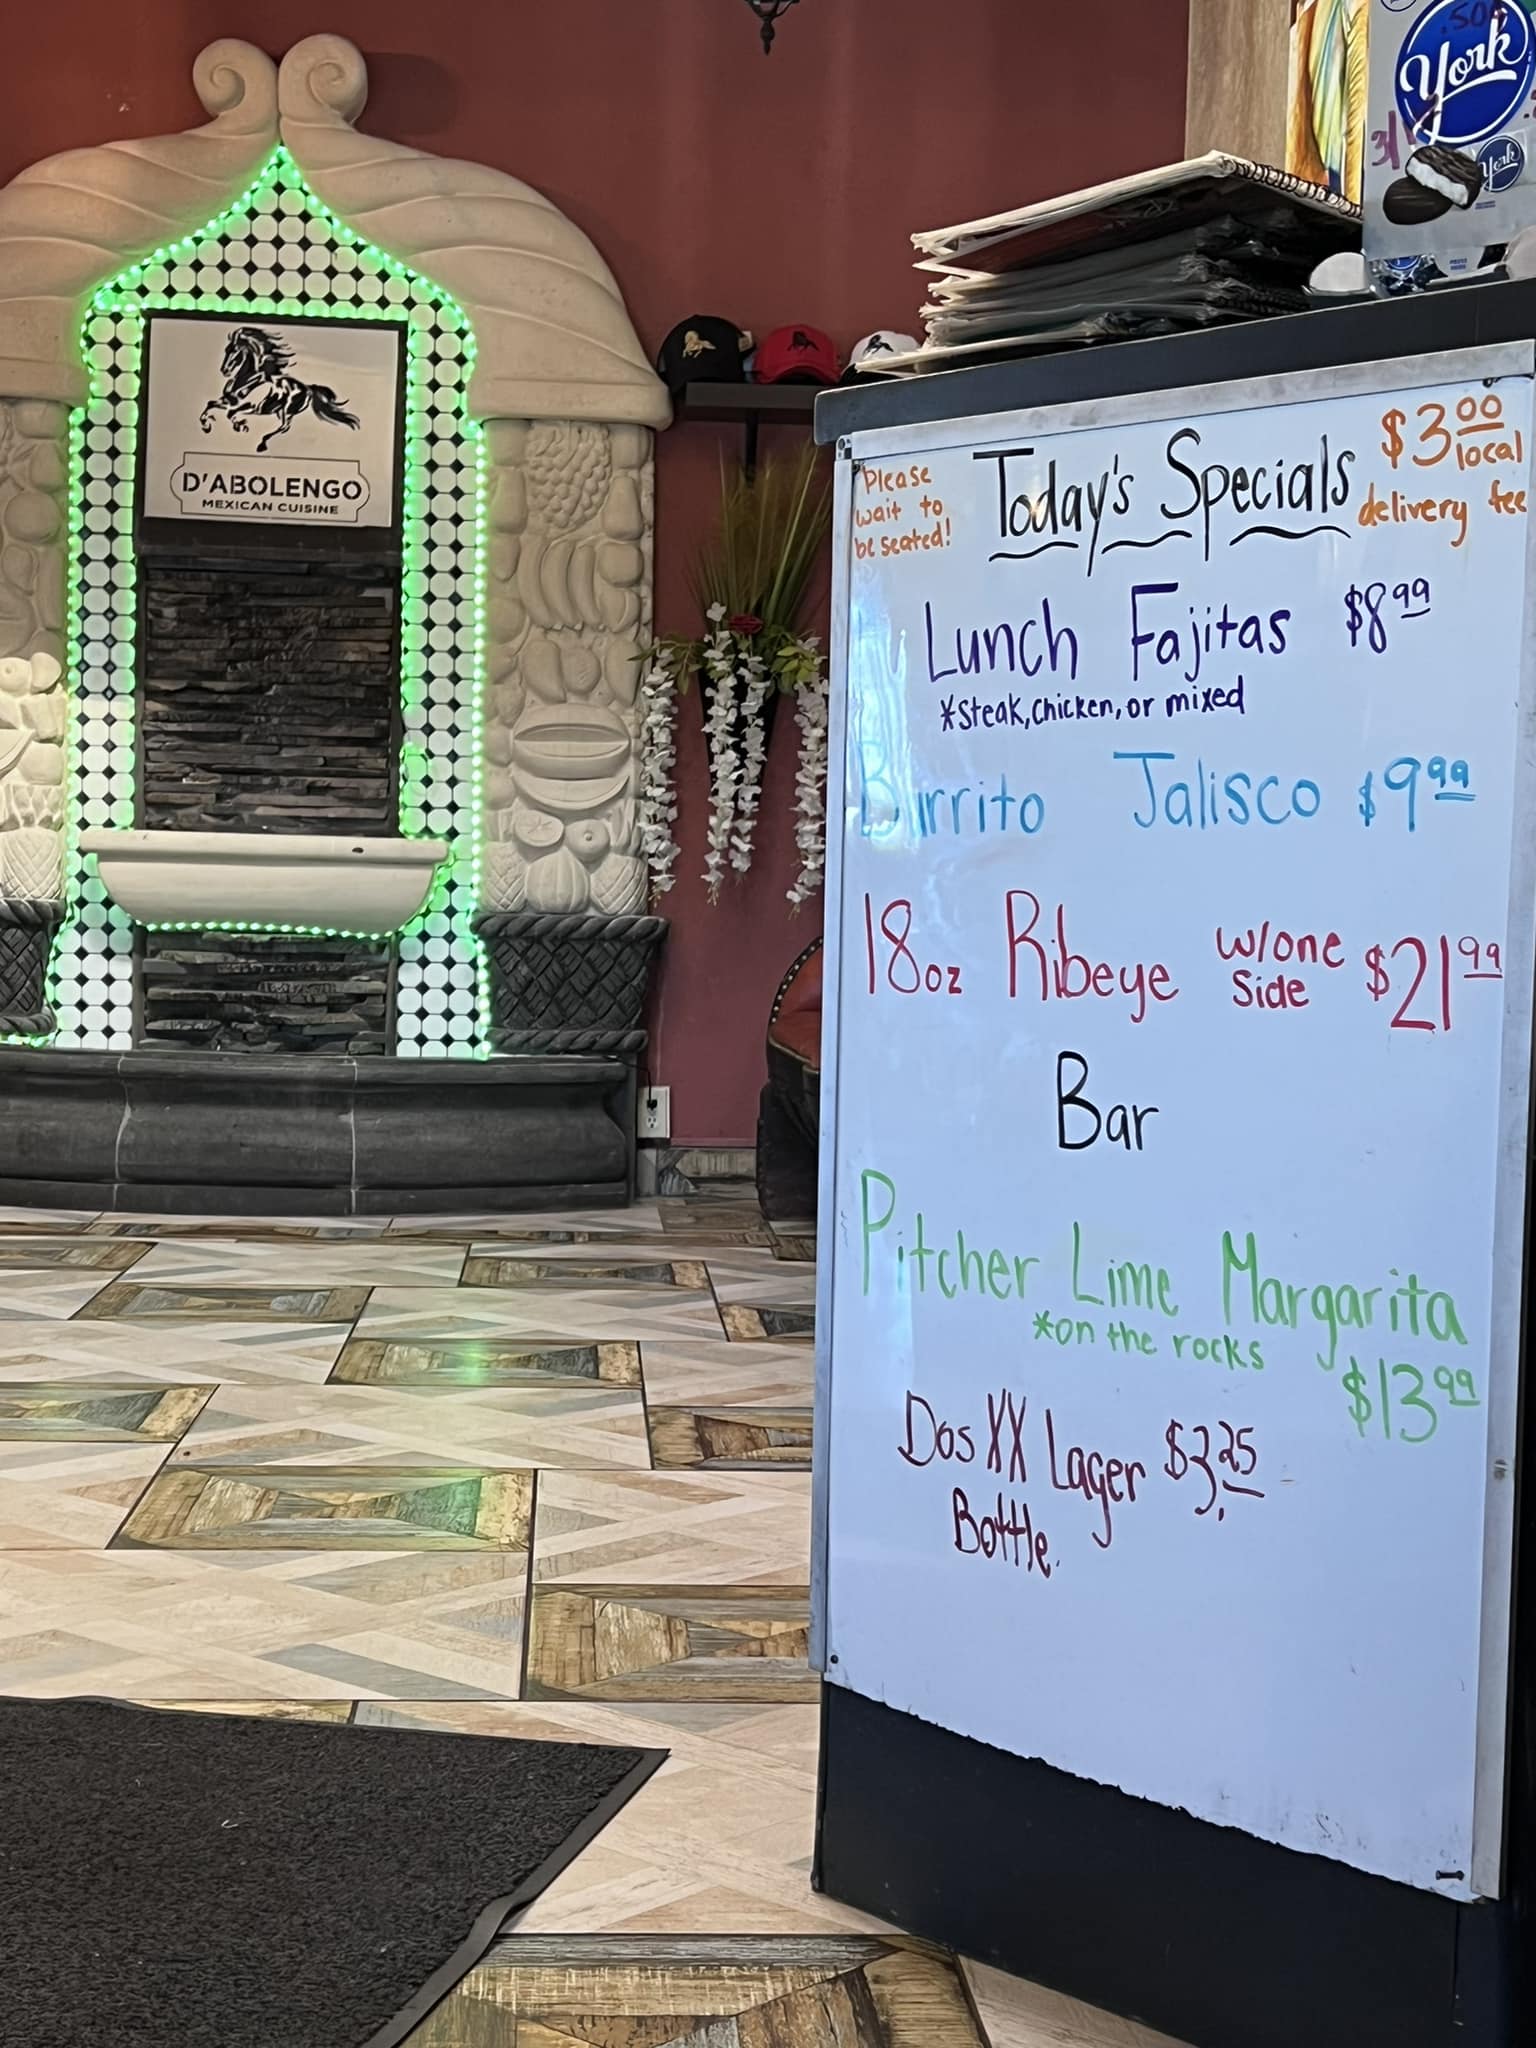 D'ABOLENGO
MEXICAN CUISINE
.50¢
York
3/1
York
Please
wait to
be seated!
Today's Specials
$3.00
local
delivery fee
Lunch Fajitas $8.99
*steak, chicken, or mixed
Burrito Jalisco $9.99
18oz Ribeye w/one
Side $21.99
Bar
Pitcher Lime Margarita
*on the rocks
$13.99
Dos XX Lager $3.25
Bottle.